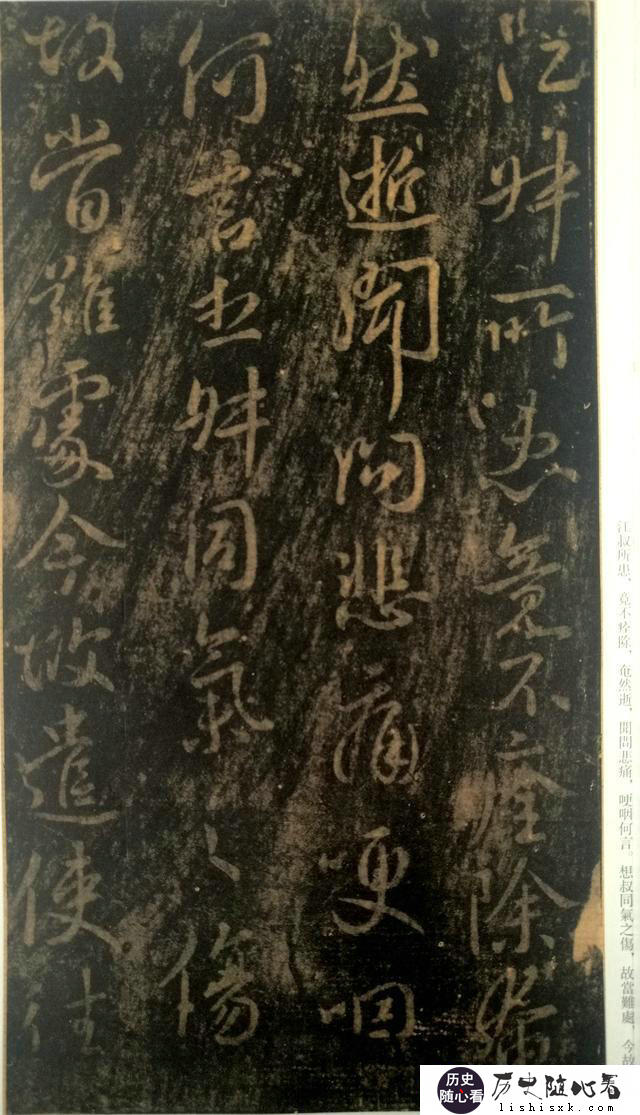 江叔所患竟不痊除奄
然逝聞問悲痛哽咽
何言想叔同氣之傷
故當難處今故遣使往
江叔所患，竟不痊除，奄然逝，聞問悲痛，哽咽何言。想叔同氣之傷，故當難處，今故
历史随心看
历史随心看
lishisxk.com